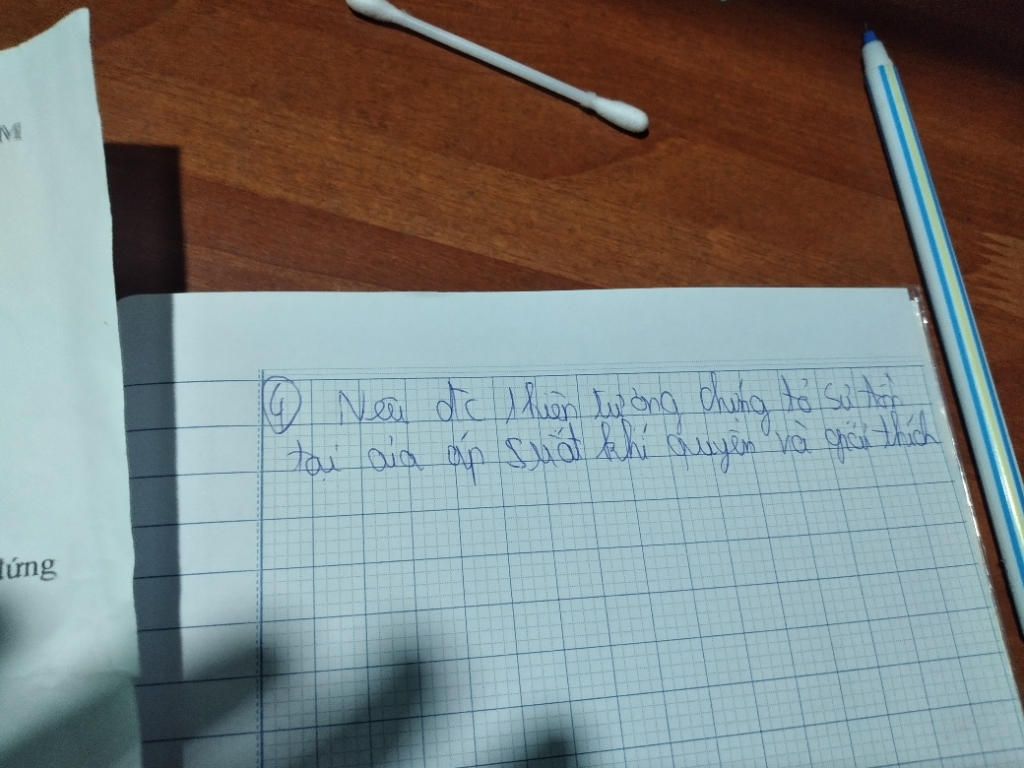 M
④ Nêu đc 1 hiện tượng chứng tỏ sự tồn
tại của áp suất khí quyển và giải thích
đứng